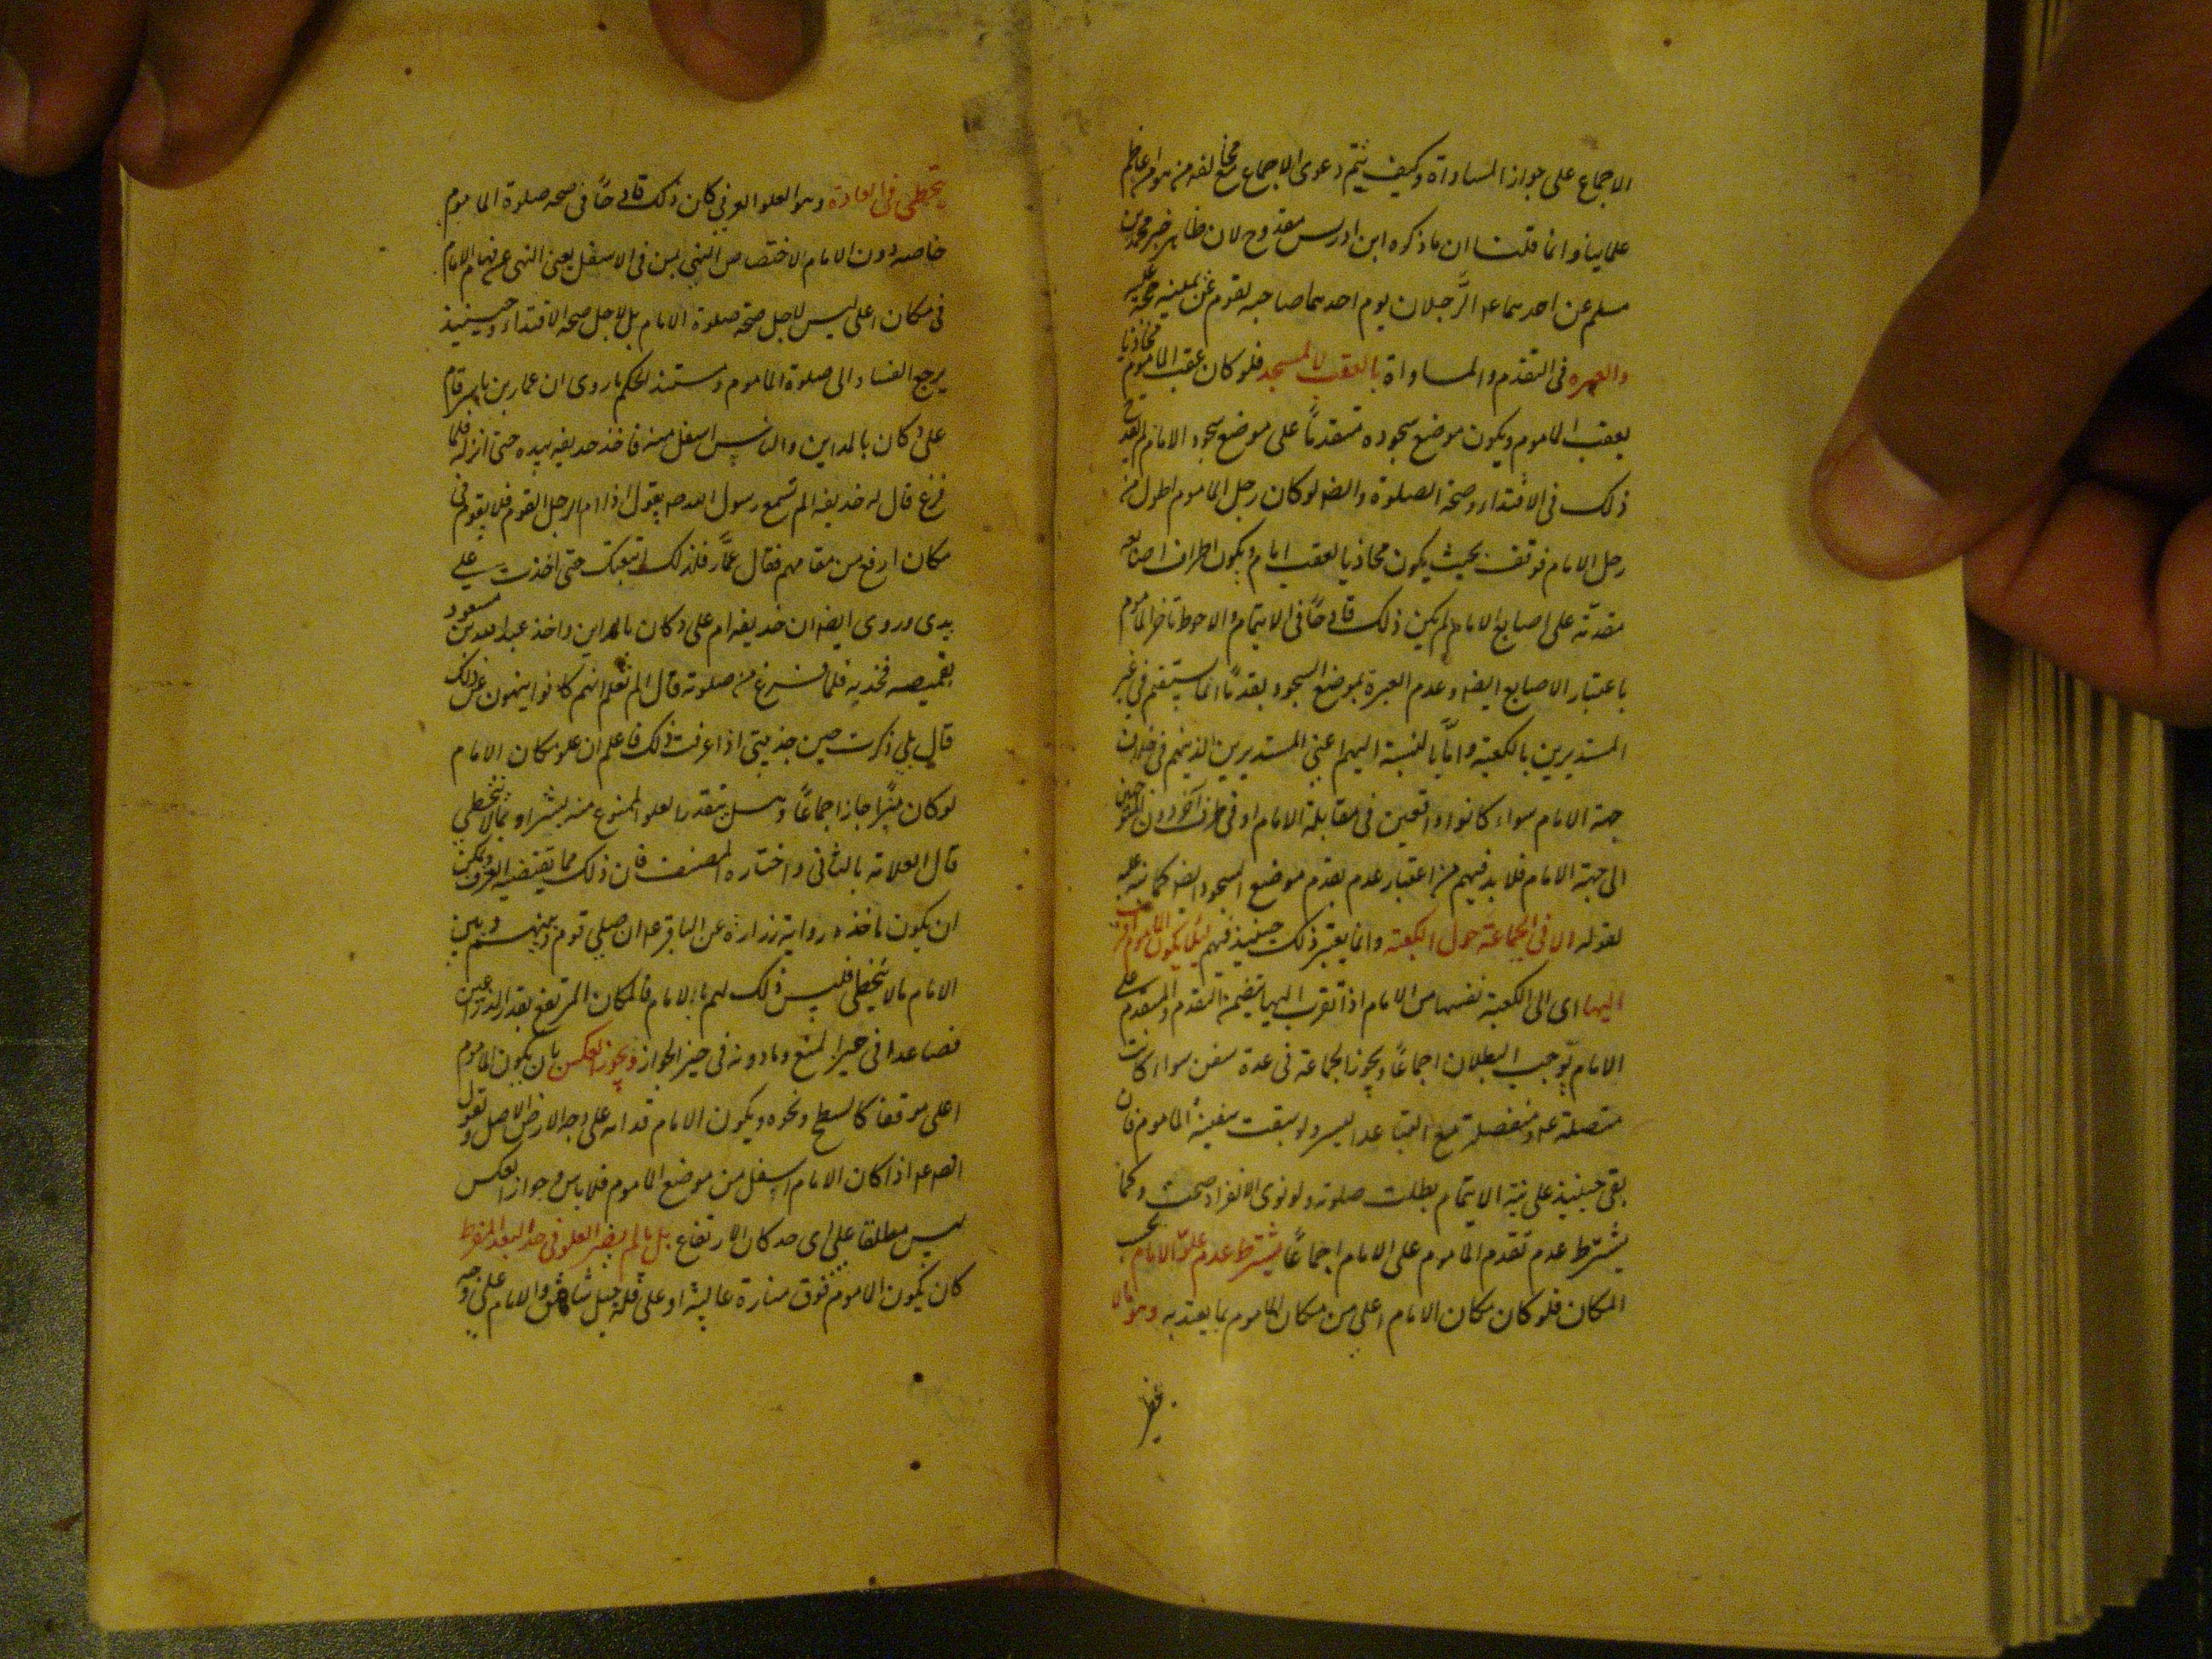 الاجماع على جواز المساواة وكيف يتم دعوى الاجماع مع مخالفه من هو من اعاظم
علمائنا وانما قلنا ان ما ذكره ابن ادريس مقدوح لان ظاهر خبر محمد بن
مسلم عن احدهما عم الرَّجلان يوم احدهما صاحبه يقوم عن يمينه حجة عليه
والعبره فى التقدم والمساواة بالعقب لا المسجد فلو كان عقب الماموم محاذيا
بعقب الماموم ويكون موضع سجوده متقدماً على موضع سجود الامام لم يقدح
ذلك فى الاقتداء وصحة الصلوة وايضه لو كان رجل الماموم اطول من
رجل الامام فوقف بحيث يكون محاذيا لعقب امام ويكون اطراف اصابعه
مقدمة على اصابع الامام لم يكن ذلك قادحاً فى الايتمام والاحوط تاخر الماموم
باعتبار الاصابع ايضه وعدم العبرة بموضع السجود بقدماً انما يستقيم فى غير
المستديرين بالكعبة واما بالنسبة اليهم اعنى المستديرين الذينهم فى خلاف
جهة الامام سواء كانوا واقعين فى مقابلة الامام او فى طرف آخر دون المتوجهين
الى جهة الامام فلا بد فيهم من اعتبار عدم تقدم موضع السجود ايضه كما نبه عليه
بقوله الا فى الجماعة حول الكعبة وانما يعتبر ذلك حينئذ فيهم لئلا يكون الماموم اقرب
اليها اى الى الكعبة نفسها من الامام اذ القرب اليها يتضمن التقدم والمتقدم على
الامام يوجب البطلان اجماعاً ويجوز الجماعة فى عدة سفن سواء كانت
متصلة او منفصلة مع التباعد اليسير ولو سبقت سفينة الماموم فان
بقى حينئذ على نية الايتمام بطلت صلوته ولو نوى الانفراد صحت وكما
يشترط عدم تقدم الماموم على الامام اجماعاً يشترط عدم علو الامام بحسب
المكان فلو كان مكان الامام اعلى من مكان الماموم بما يعتد به وهو ما لا
يتخطى فى العادة وهو العلو العرفى كان ذلك قادحاً فى صحه صلوة الماموم
خاصه دون الامام لاختصاص النهى بمن فى الاسفل يعنى النهى عن قيام الامام
فى مكان اعلى ليس لاجل صحة صلوة الامام بل لاجل صحه الاقتداء وحينئذ
يرجع الفساد الى صلوة الماموم ومستند الحكم ما روى ان عمار بن ياسر قام
على دكان بالمداين والناس اسفل منه فاخذ حذيفه بيده حتى انزله فلما
فرغ قال له حذيفه الم تسمع رسول الله ص يقول اذا ام الرجل القوم فلا يقوم فى
مكان ارفع من مقامهم فقال عمَّار فلذلك اتبعتك حتى اخذت على
يدى وروى ايضه ان حذيفه ام على دكان بالمداين واخذ عبد الله بن مسعود
بقميصه فجذبه فلما فرغ من صلوته قال الم تعلم انهم كانوا ينهون عن ذلك
قال بلى ذكرت حين جذبتنى اذا عرفت ذلك فاعلم ان علو مكان الامام
لو كان يسيراً جاز اجماعاً وهل يتقدر العلو الممنوع منه بشبر او بما لا يتخطى
قال العلامة بالثانى واختاره المصنف فان ذلك مما يقتضيه العرف ويمكن
ان يكون ماخذه رواية زرارة عن الباقر عم ان صلى قوم وبينهم وبين
الامام ما لا يتخطى فليس ذلك لهم بامام فالمكان المرتفع بقدر الذراعين
فصاعدا فى حيز المنع وما دونه فى حيز الجواز ويجوز العكس بان يكون الماموم
اعلى موقفا كالسطح ونحوه ويكون الامام قدامه على وجه الارض للاصل ولقول
الص عم اذا كان الامام اسفل من موضع الماموم فلا باس وجواز العكس
ليس مطلقا على اى حد كان الارتفاع بل ما لم يصر العلو فى حد البعد المفرط
كان يكون الماموم فوق منارة عالية او على قلة جبل شاهق والامام على وجه